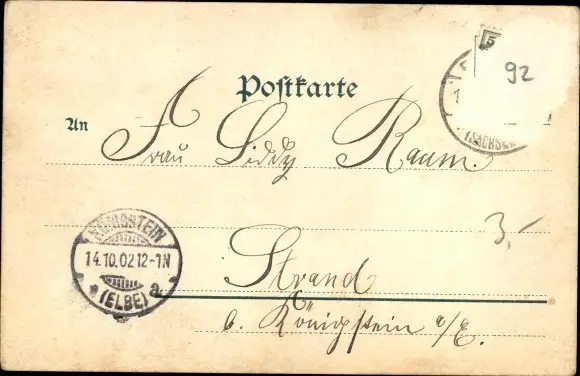 5
92
Postkarte
(SACHSEN
An
Frau Liddy Raum.
3,-
KÖNIGSTEIN
14.10.02 12-1N
* (ELBE) a.
Strand
b. Königstein a/E.